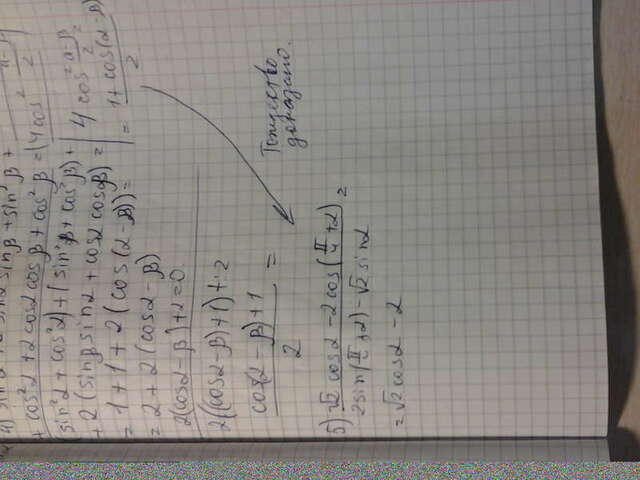 4) sin²α + 2 sinα sinβ + sin²β +
+ cos²α + 2 cosα cosβ + cos²β = (4 cos² (α-β)/2)
(sin²α + cos²α) + (sin²β + cos²β) + | 4 cos² (α-β)/2
+ 2 (sinβ sinα + cosα cosβ) = | = (1 + cos(α-β))/2
= 1 + 1 + 2 (cos(α-β)) =
= 2 + 2 (cosα - β)
2(cosα - β) + 2 = 0.
2((cosα - β) + 1) ÷ 2
(cos(α - β) + 1)/2 =
Тождество
доказано.
5) (√2 cosα - 2 cos(π/4 + α))/(2 sin(π/4 + α) - √2 sinα) =
= √2 cosα - 2